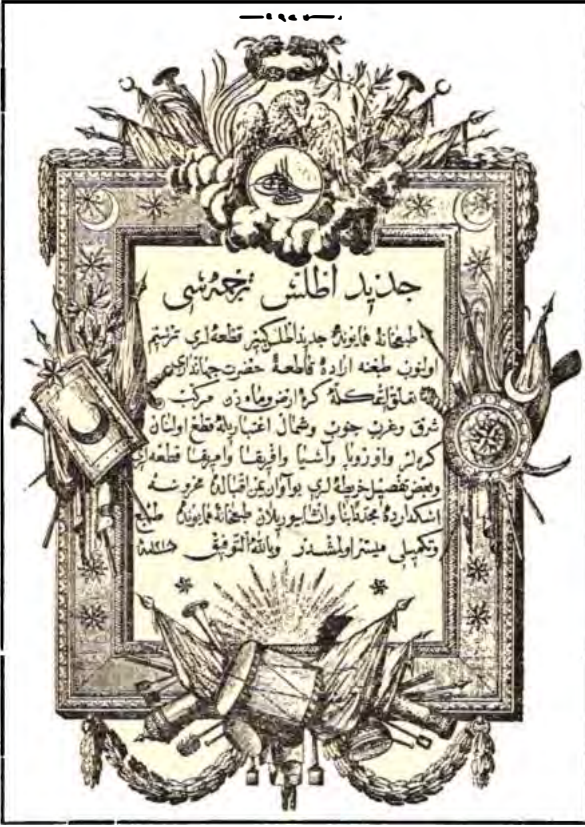 جديد اطلس ترجمه‌سى
طبخانهٔ همايونده جديد اطلس كبير قطعه‌لرى ترسيم
اولنوب طبعنه ارادهٔ قاطعهٔ حضرت جهاندارى
تعلق ايتمكله كرهٔ ارض وماءدن مركب
شرق وغرب جنوب وشمال اعتباريله قطع اولنان
كره‌لر واوروپا واسيا وافريقا واميرقا قطعه‌لرى
وبعض تفصيل خريطه‌لرى بو آوان يمن اقبالده محروسهٔ
اسكدارده مجددًا بنا وانشا بيوريلان طبخانهٔ همايونده طبع
وتكميلى ميسر اولمشدر وبالله التوفيق